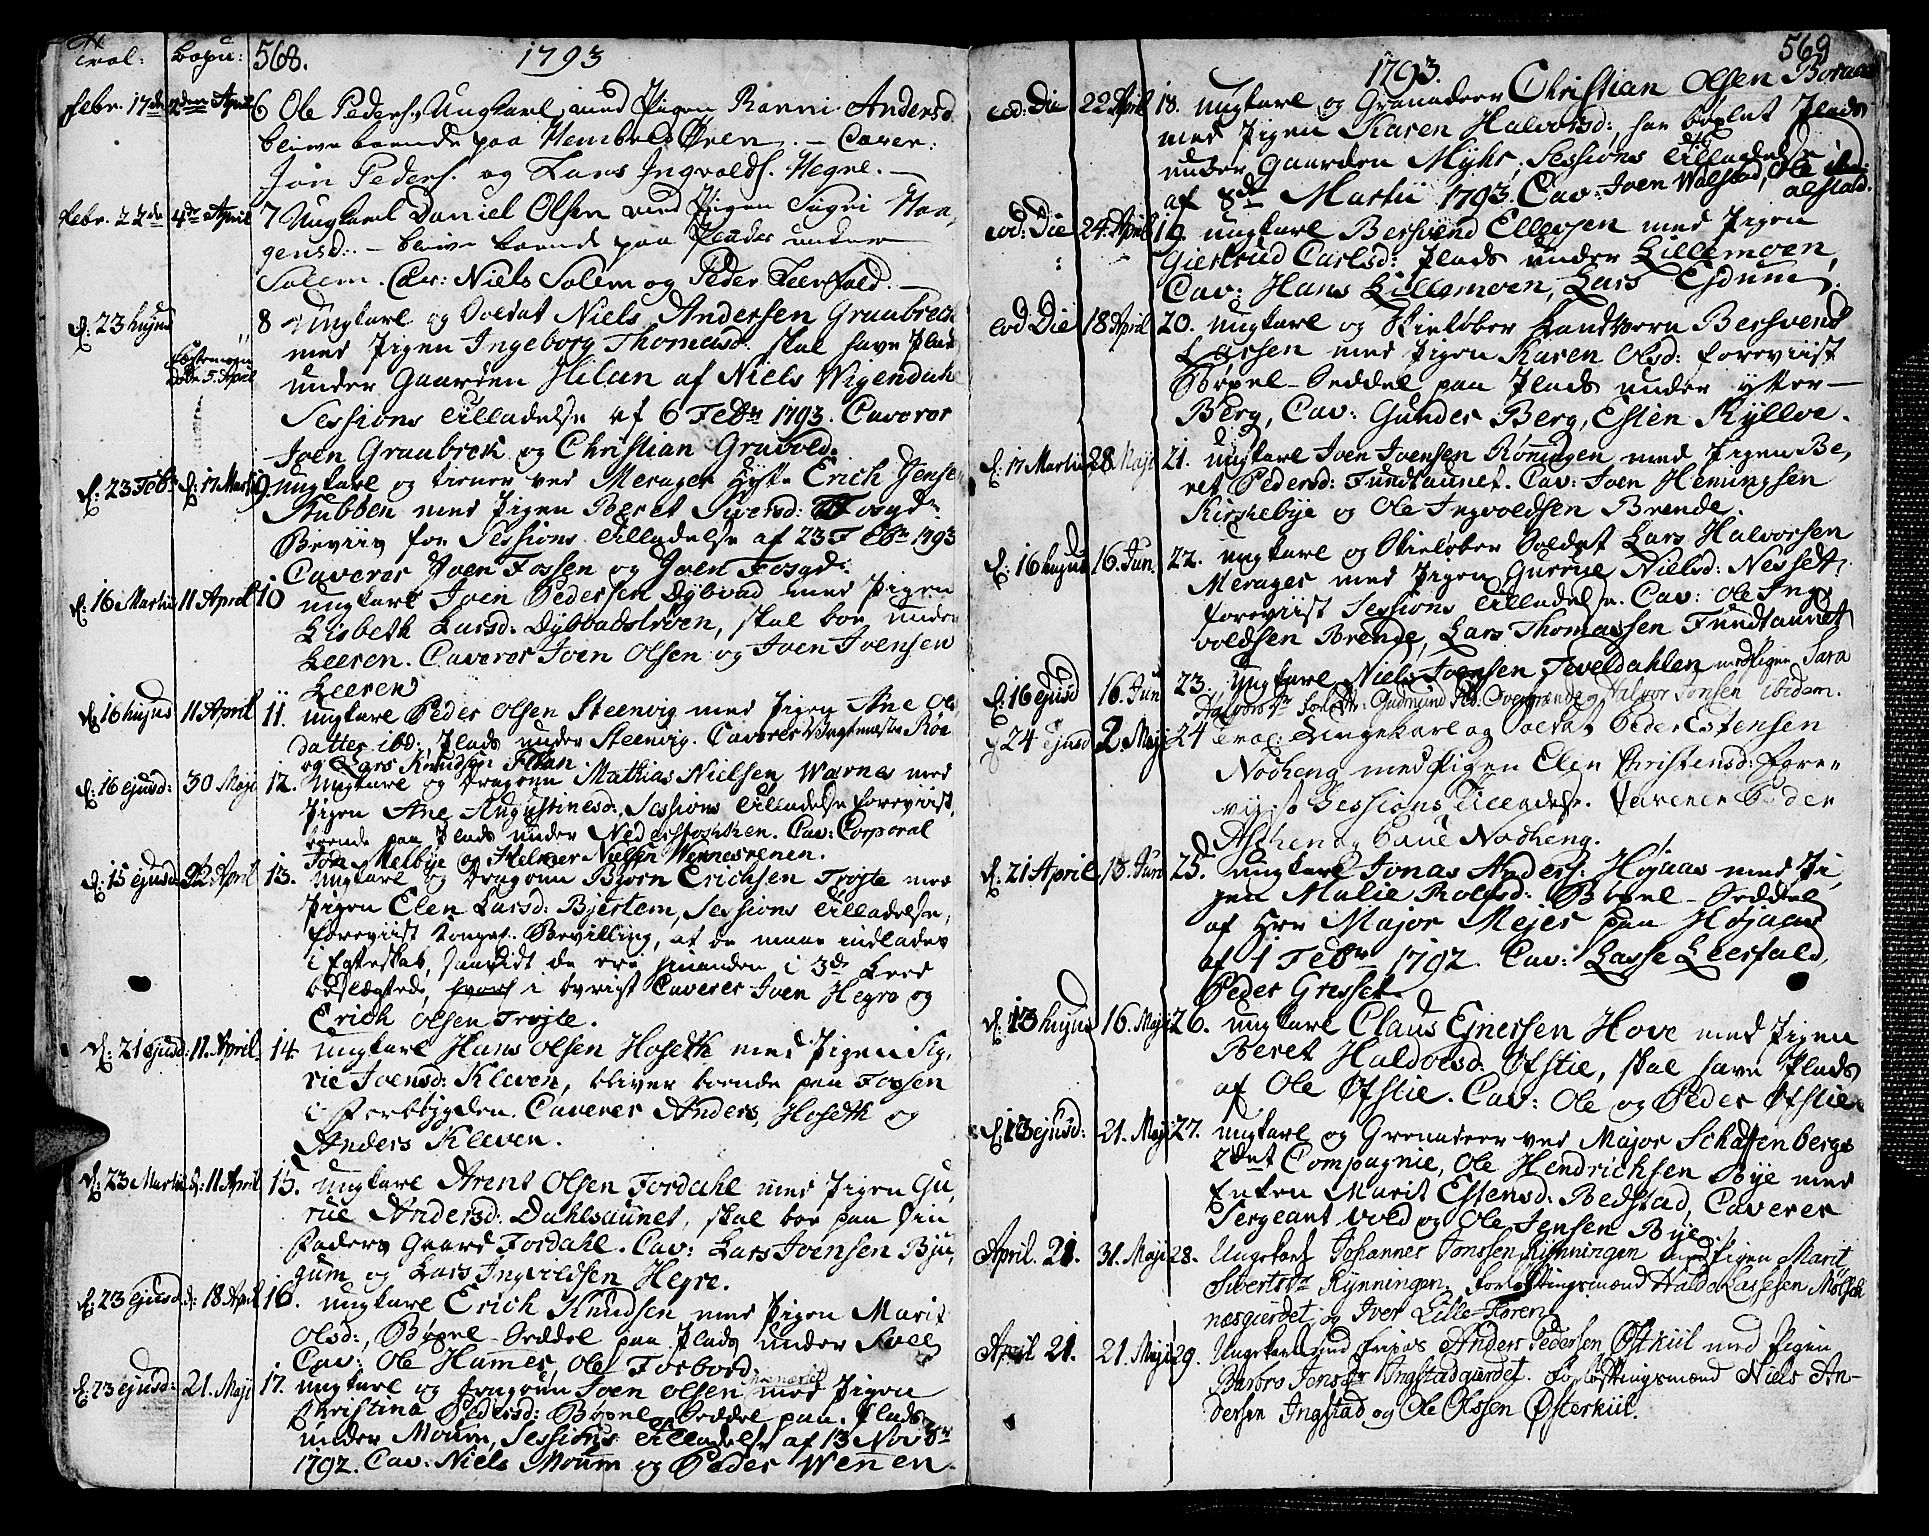 Trol: Copu: 568. 1793
Febr. 17de 2den April 6 Ole Peders. Ungkarl med Pigen Ranni Andersd
blive boende paa Hembels Øren. — Caver:
Jon Peders. og Lars Ingvolds. Hegre. —
Febr. 22de 4de April 7 Ungkarl Daniel Olsen med Pigen Sigri Haa-
gensd: — blive boende paa Plads under
Salem. Cav: Niels Salem og Peder Leerfald. —
d: 23 hujus 8 Ungkarl og Soldat Niels Andersen Graubrek
med Pigen Ingeborg Thomasd: skal have Plads
døde 5. April under Gaarden Hilan af Niels Wigendahl
Sessions Tilladelse af 6 Febr 1793. Caverer
Joen Graubrek og Christian Gravold.
d: 23 Febr d: 17 Martij 9. Ungkarl og tiener ved Merager Hytte Erich Jensen
Stubben med Pigen Beret Iversd: Fosgd.
Beviis for Sessions Tilladelse af 23 Febr 1793
Caverer Joen Fossen og Joen Fosgd:
d: 16 Martij 11 April 10 Ungkarl Joen Pedersen Dybvad med Pigen
Lisbeth Larsd: Dybvadsleven, skal boe under
Leeren. Caverer Joen Olsen og Joen Joensen
Leeren
d: 16 hujus 11 April 11. Ungkarl Peder Olsen Steenvig med Pigen Ane Ols-
datter ibd:, Plads under Steenvig. Caverer Vagtmester Røe
og Lars Knudsen Fløan
d: 16 ejusd: 30 Maji 12. Ungkarl og Dragoun Mathias Nielsen Warnes med
Pigen Ane Augustinesd:, Sessions Tilladelse foreviist,
boende paa Plads under Nederstokken. Cav: Corporal
Jon Melbye og Helmer Nielsen Wernesrenen.
d: 15 ejusd 22 April 13. Ungkarl og Dragoun Bjørn Erichsen Trøjte med
Pigen Elen Larsd: Bjertem, Sessions Tilladelse,
foreviist Konget. Bevilling, at de maae indlades
i Egteskab, saavidt de ere hinanden i 3de Leed
beslægtede, i øvrigt Caverer Joen Hegre og
Erich Olsen Trøjte.
d: 21 ejusd: 11. April 14. Ungkarl Hans Olsen Hoseth med Pigen Sig-
rie Joensd: Kleven, bliver boende paa Fossen
i Forbygden. Caverer Anders Hoseth og
Anders Kleven.
d: 23 Martij d: 11 April 15. Ungkarl Arent Olsen Fordahl med Pigen Gu-
rue Andersd: Dahlsaunet, skal boe paa Sin
Faders Gaard Fordahl. Cav: Lars Joensen Bju-
gum og Lars Ingvoldsen Hegre.
d: 23 ejusd: d: 18 April 16. Ungkarl Erich Knudsen med Pigen Marit
Olsd:, Bøpel-Seddel paa Plads under Voll
Cav: Ole Hammer, Ole Forbord
d: 23 ejusd: 21. Maji 17. Ungkarl og Dragoun Joen Olsen med Pigen
Christina Pedersd: Bøpel-Seddel paa Plads
under Moum, Sessions Tilladelse af 13 Novbr
1792. Cav: Niels Moum og Peder Wenen
569
1793.
eod: Die 22 April 18. Ungkarl og Granadeer Christian Olsen Boraas
med Pigen Karen Halvorsd:, har bøxlet Plads
under Gaarden Myhr, Sessions Tilladelse
af 8de Martii 1793. Cav: Joen Walstad, Ole ibd:
alstad.
eod: Die 24. April 19. Ungkarl Bersvend Ellevsen med Pigen
Giertrud Carlsd: Plads under Lillemoen,
Cav: Hans Lillemoen, Lars Esdum.
eod Die 18 April 20. Ungkarl og Skieløber Landtvern Bersvend
Larsen med Pigen Karen Olsd: foreviist
Bøpel-Seddel paa Plads under ytter-
Berg, Cav: Gunder Berg, Esten Kylloe.
d: 17 Martii 28 Maji 21. Ungkarl Joen Joensen Rønningen med Pigen Be-
ret Pedersd: Fundtaunet. Cav: Joen Hemingsen
Kirkebye og Ole Ingvoldsen Brende.
d: 16 hujus 16 Jun. 22. Ungkarl og Skieløber Soldat Lars Halvorsen
Merager med Pigen Gurue Nielsd: Nessett.
foreviist Sessions Tilladelse. Cav: Ole Ing-
voldsen Brende, Lars Thomassen Fundtaunet
d: 16 ejusd 16 Jun 23. Ungkarl Niels Joensen Teveldahlen med Pigen Sara
Halvorsdr forlftr: Gudmund Ped. og Halvor Jonsen ibidem.
d: 24 ejusd 2. Maji 24 Trol: Ungekarl og Soldat Peder Estensen
Nodheng med Pigen Elen Christensd: fore-
viist Sessions Tilladelse. Caverer Peder
Aschen og Povel Nodheng.
d: 21 April 13. Jun 25. Ungkarl Jonas Anders: Højaas med Pi-
gen Malie Rolfsd: Bøpel-Seddel
af Hrr Major Mejer paa Højaas
af 1 Febr 1792. Cav: Lasse Leerfald,
Peder Gresset.
d: 13 hujus 16. Maji 26. Ungkarl Claus Ejnersen Hove med Pigen
Beret Haldorsd: Øfstie, skal have Plads
af Ole Øfstie. Cav: Ole og Peder Øfstie.
d: 13 ejusd: 21. Maji 27. Ungkarl og Grenadeer ved Major Schaffenbergs
2det Compagnie, Ole Hendrichsen Bye med
Enken Marit Estensd: Bedstad, Caverer
Sergeant Vold og Ole Jensen Bye.
April. 21. 31. Maji 28. Ungekarl Johannes Jonssen Rynningen med Pigen Marit
Sivertsdr Rynningen. Forlovningsmænd Haldo Lassesen Mølska
næsgierdet og Iver Lille-Floren.
April 21. 21. Maji 29. Ungekarl Anders Pedersen Østkiil med Pigen
Barbro Jonsdr Ingstadgierdet. Forlovningsmænd Niels An-
dersen Ingstad og Ole Olssen Østerkiil.